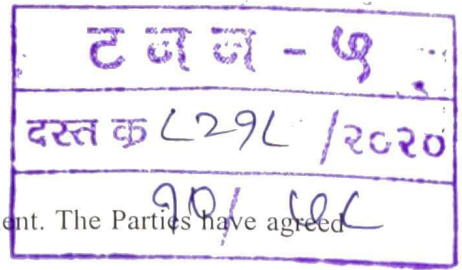 ट न न - ५
दस्त क्र ८२१८ /२०२०
१०/
ent. The Parties have agreed